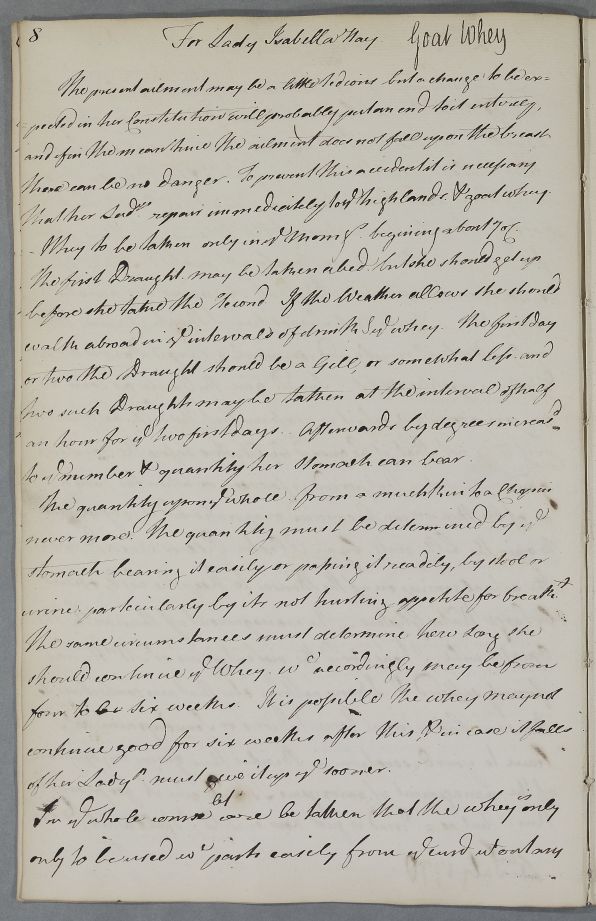 8 For Lady Isabella Hay Goat Whey
The present ailment may be a little tedious but a change to be ex=
pected in her Constitution will probably put an end to it entirely,
and if in the mean time the ailment does not fall upon the breast
there can be no danger. To prevent this accident it is necessary
that her Ladyp repair immediately to ye highlands & goat whey.
Whey to be taken only in ye Morngs begining about 7 o'C.
The first Draught may be taken abed but she should get up
before she take the Second If the Weather allows she should
walk abroad in ye intervals of drinkg ye whey. The first day
or two the Draught should be a Gill, or somewhat less and
two such Draughts may be taken at the interval of half
an hour for ye two first days. Afterwards by degrees increasd
to ye number & quantity her Stomach can bear.
The quantity upon ye whole from a mutchkin to a Chopin
never more. The quantity must be determined by ye
stomach bearing it easily or passing it readily, by stool or
urine particularly by its not hurting appetite for breakft
The same circumstances must determine how long she
should continue ye Whey. wc accordingly may be from
four to six weeks. It is possible the whey may not
continue good for six weeks after this, & in case it falls
of her Ladyp must give it up ye sooner.
In ye whole course let care be taken that the whey is only
only to be used wc parts easily from ye curd without any